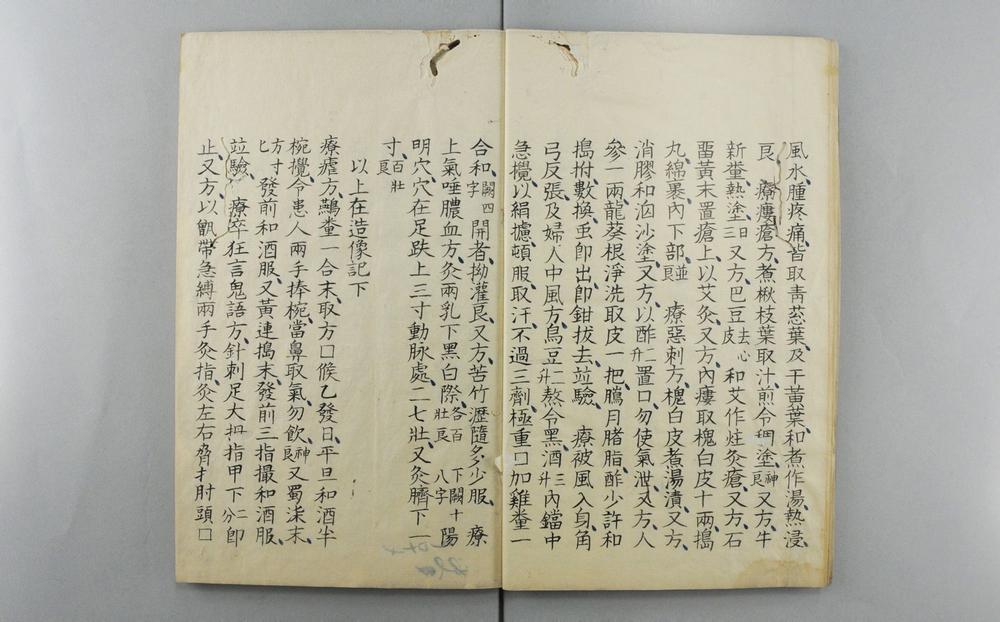 風水腫疼痛皆取青葱葉及干黃葉和煮作湯熱浸
良　療瘻瘡方煮楸枝葉取汁煎令稠塗神良又方牛
新糞熱塗日三又方巴豆去心皮和艾作炷灸瘡又方石
畱黃末置瘡上以艾灸又方內瘻取槐白皮十兩搗
丸綿裹內下部並良　療惡刺方槐白皮煮湯漬又方
消膠和泅沙塗又方以酢二升置口勿使氣泄又方人
參一兩龍葵根淨洗取皮一把臈月豬脂酢少許和
搗拊數換䖝卽出卽鉗拔去竝驗　療被風入身角
弓反張及婦人中風方烏豆二升熬令黑酒三升內鐺中
急攪以絹攄頓服取汗不過三劑極重口加雞糞一
合和闕四字開者拗灌良又方苦竹瀝隨多少服　療
上氣唾膿血方灸兩乳下黑白際各百壯良　下闕十八字　陽
明穴穴在足趺上三寸動脉處二七壯又灸臍下一
寸百壯良
以上在造像記下
療瘧方鷰糞一合末取方口候乙發日平旦和酒半
椀攪令患人兩手捧椀當鼻取氣勿飲神良又蜀柒末
方寸匕發前和酒服又黃連搗末發前三指撮和酒服
竝驗　療卒狂言鬼語方針刺足大拇指甲下二分卽
止又方以甑帶急縛兩手灸指灸左右脅扌肘頭口